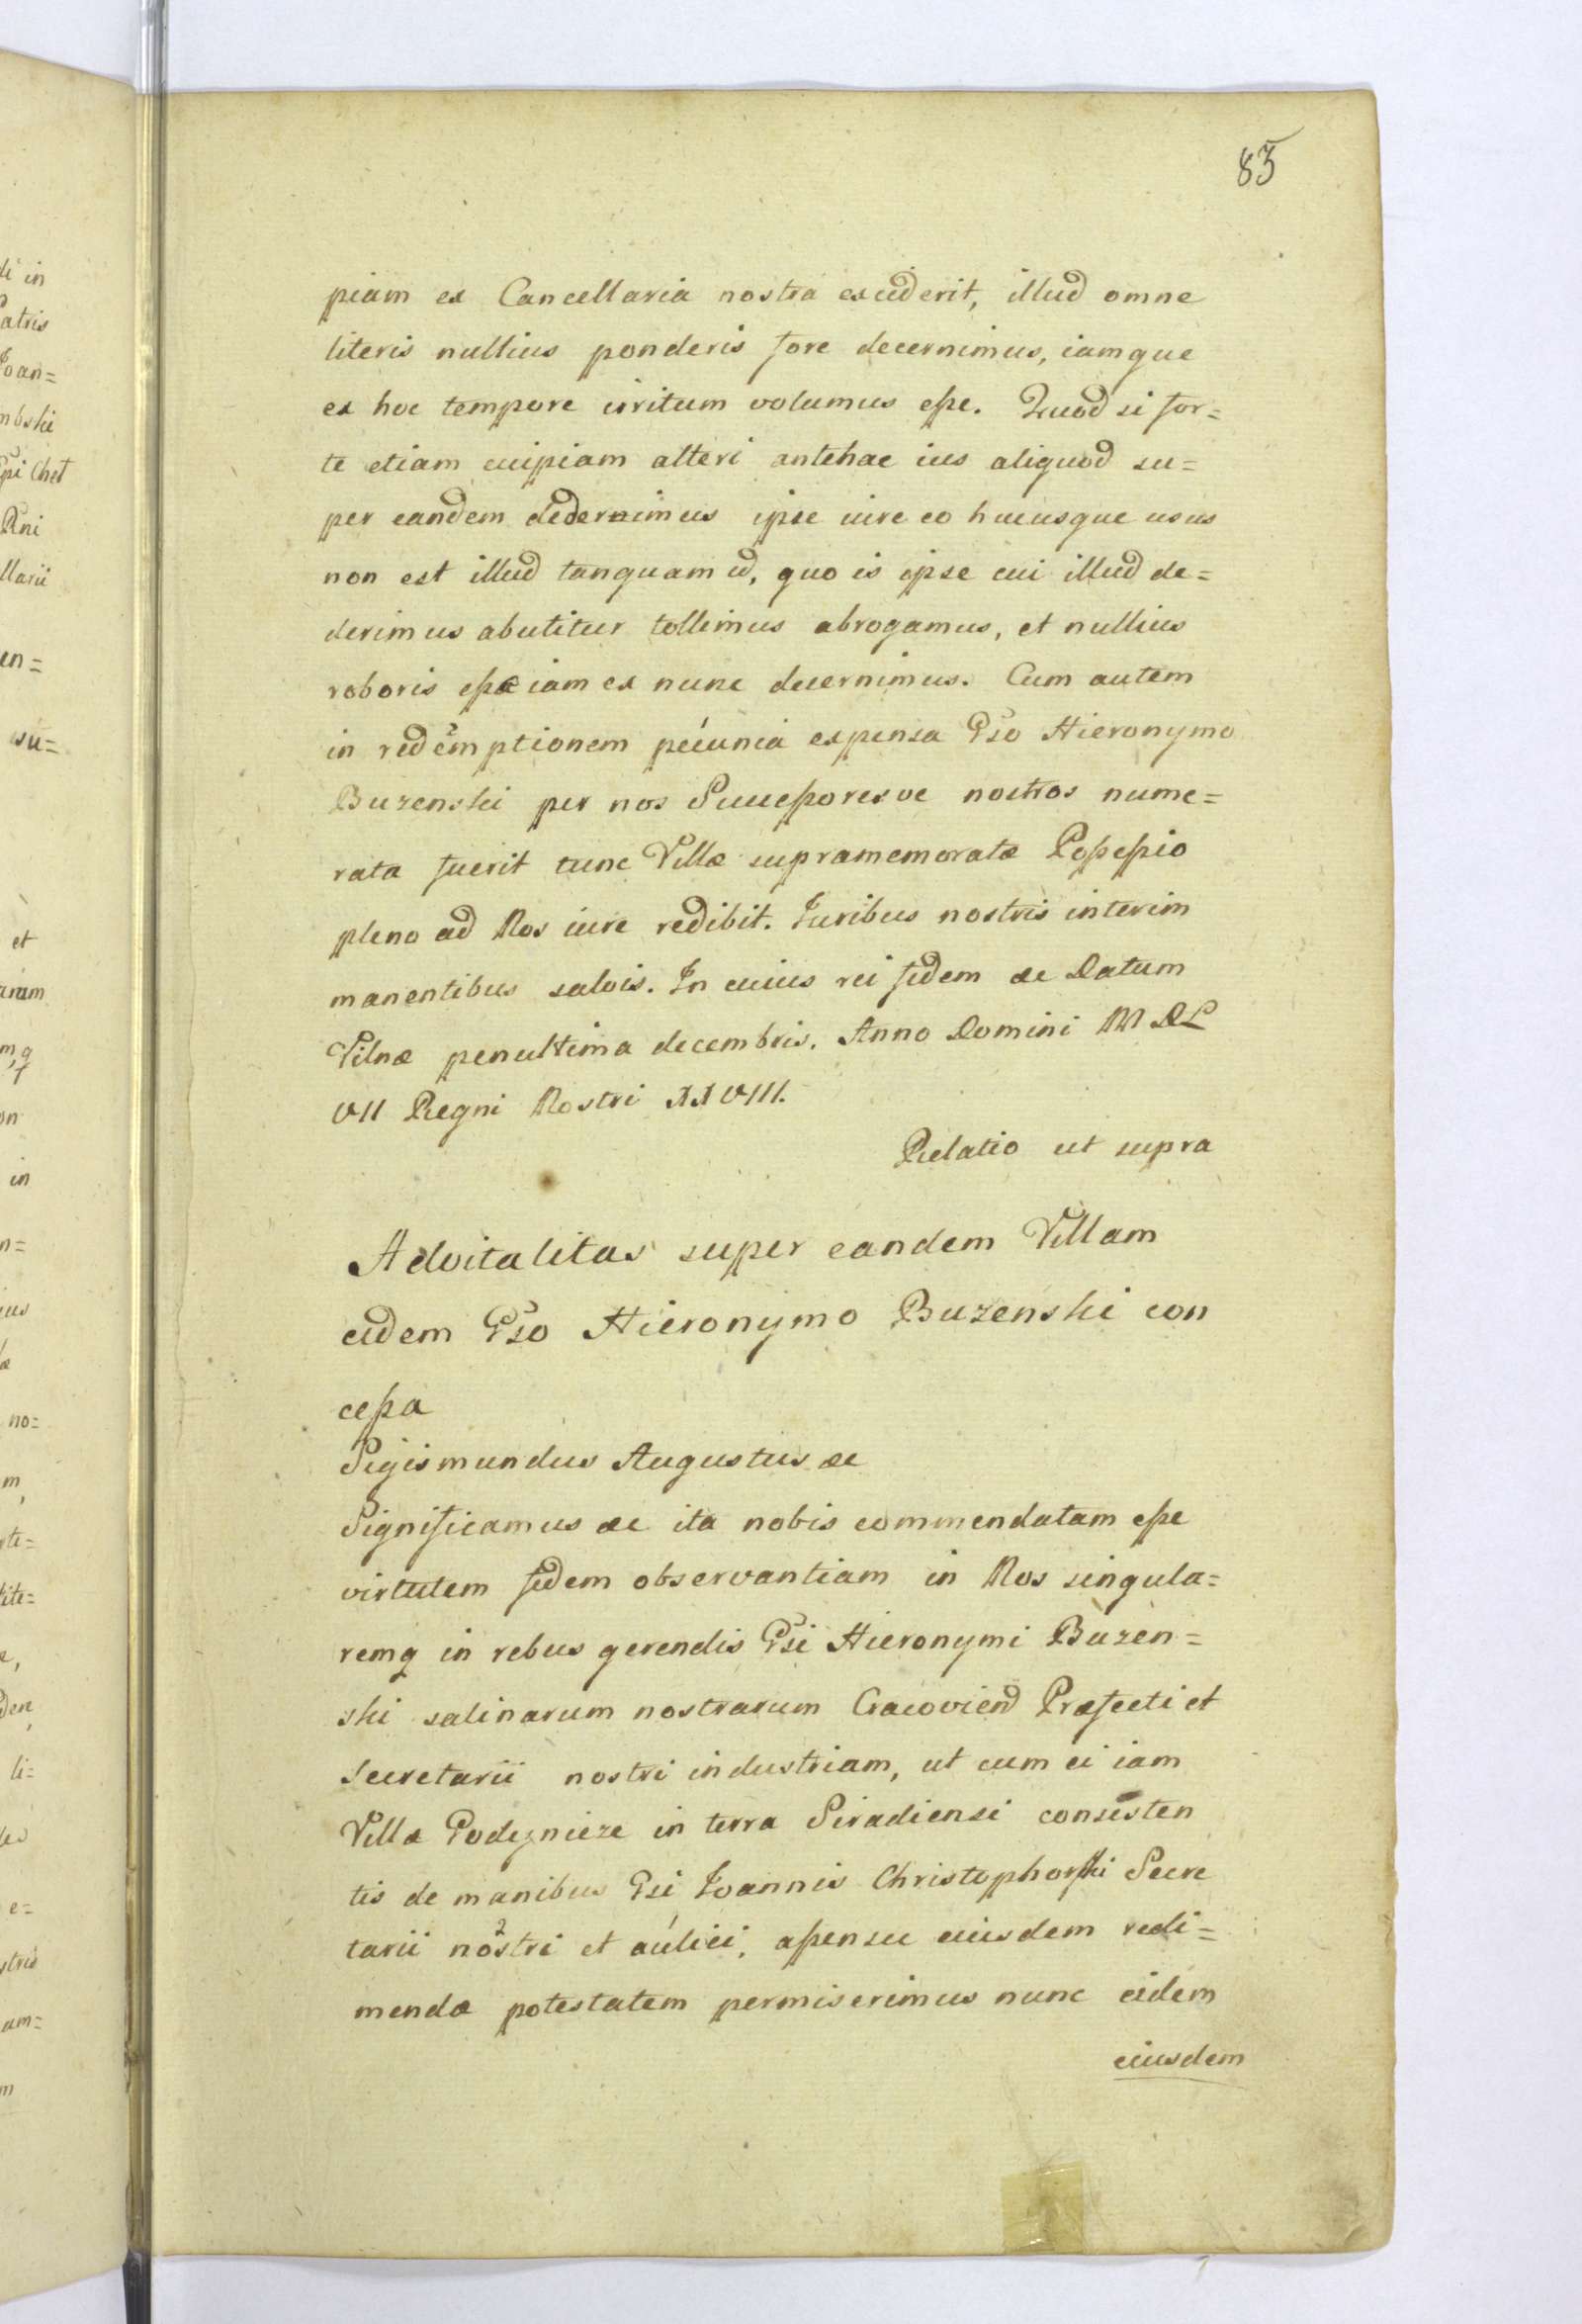 83
piam ex Cancellaria nostra exciderit, illud omne
literis nullius ponderis fore decernimus, iamque
ex hoc tempore irritum volumus eſse. Quod si for=
te etiam cuipiam alteri antehac ius aliquod su=
per eandem dedernimus ipse iure eo hucusque usus
non est illud tanquam id, quo is ipse cui illud de=
derimus abutitur tollimus abrogamus, et nullius
roboris eſse iam ex nunc decernimus. Cum autem
in redemptionem pecunia expensa Gso Hieronymo
Buzenski per nos Succeſsoresve nostros nume=
rata fuerit tunc Villæ supramemoratæ Poſseſsio
pleno ad Nos iure redibit. Iuribus nostris interim
manentibus salvis. In cuius rei fidem &c Datum
Vilnæ penultima decembris. Anno Domini MDL
VII Regni Nostri XXVIII.
Relatio ut supra
Advitalitas super eandem Villam
eidem Gso Hieronymo Buzenski con
ceſsa
Sigismundus Augustus &c
Significamus &c ita nobis commendatam eſse
virtutem fidem observantiam in Nos singula=
remq in rebus gerendis Gsi Hieronymi Buzen=
ski salinarum nostrarum Cracoviend Præfecti et
Secretarii nostri industriam, ut cum ei iam
Villæ Podegnieze in terra Siradiensi consisten
tis de manibus Gsi Ioannis Christophorski Secre
tarii nostri et aulici, aſsensu eiusdem redi=
mendæ potestatem permiserimus nunc eidem
eiusdem